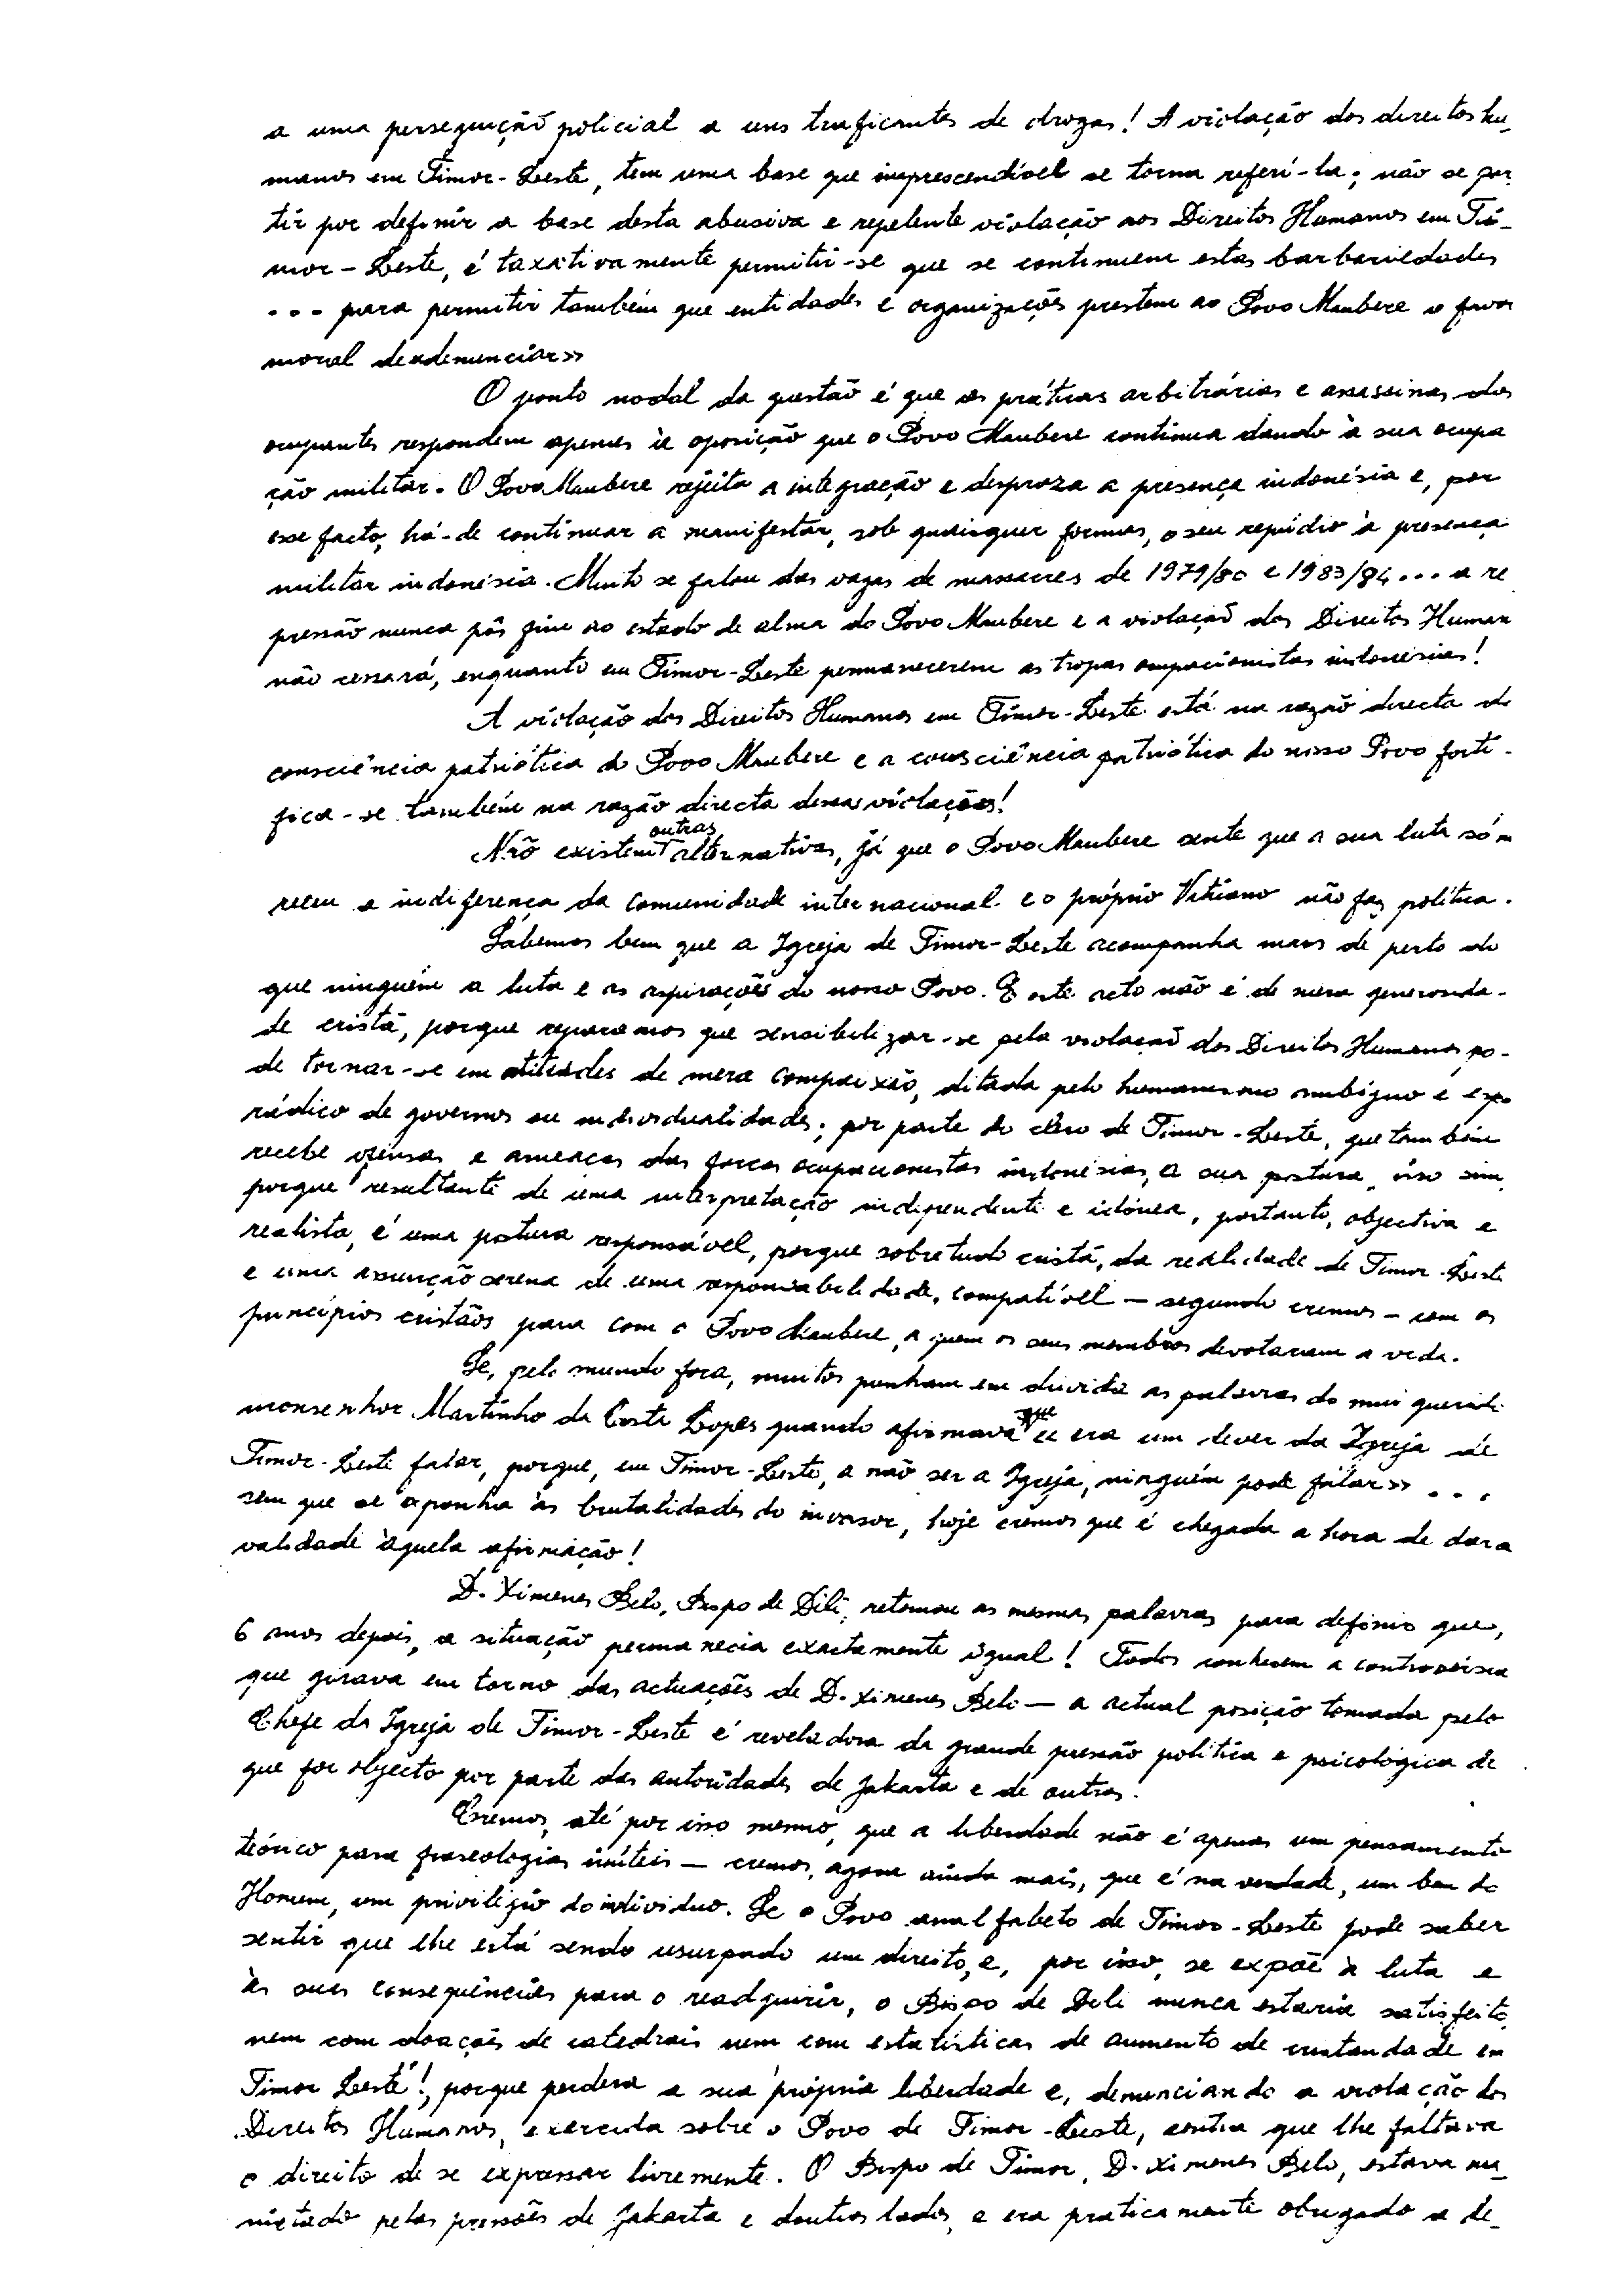 a uma perseguição policial a uns traficantes de drogas! A violação dos direitos hu-
manos em Timor-Leste, tem uma base que imprescendível se torna referí-la; não se par
tir por definir a base desta abusiva e repelente violação aos Direitos Humanos em Ti-
mor-Leste, é taxativamente permitir-se que se continuem estas barbariedades
... para permitir também que entidades e organizações prestem ao Povo Maubere o favor
moral de denunciar»
O ponto nodal da questão é que as práticas arbitrárias e assassinas dos
ocupantes respondem apenas à oposição que o Povo Maubere continua dando à sua ocupa
ção militar. O Povo Maubere rejeita a integração e despreza a presença indonésia e, por
esse facto, há-de continuar a manifestar, sob quaisquer formas, o seu repúdio à presença
militar indonésia. Muito se falou das vagas de massacres de 1979/80 e 1983/84... a re
pressão nunca pôs fim ao estado de alma do Povo Maubere e a violação dos Direitos Human
não cessará, enquanto em Timor-Leste permanecerem as tropas ocupacionistas indonésias!
A violação dos Direitos Humanos em Timor-Leste está na razão directa da
consciência patriótica do Povo Maubere e a consciência patriótica do nosso Povo forti-
fica-se também na razão directa dessas violações!
Não existem outras alternativas, já que o Povo Maubere sente que a sua luta só m
receu a indiferença da comunidade internacional e o próprio Vaticano não faz política.
Sabemos bem que a Igreja de Timor-Leste acompanha mais de perto do
que ninguém a luta e as aspirações do nosso Povo. E este acto não é de mera generosida-
de cristã, porque reparamos que sensibilizar-se pela violação dos Direitos Humanos po-
de tornar-se em atitudes de mera compaixão, ditada pelo humanismo ambíguo e espo
rádico de governos ou individualidades; por parte do clero de Timor-Leste, que também
recebe ofensas e ameaças das forças ocupacionistas indonésias, a sua postura, isso sim,
porque resultante de uma interpretação independente e idónea, portanto, objectiva e
realista, é uma postura responsável, porque sobretudo cristã, da realidade de Timor-Leste
e uma assunção serena de uma responsabilidade, compatível — segundo cremos — com os
princípios cristãos para com o Povo Maubere, a quem os seus membros devotaram a vida.
Se, pelo mundo fora, muitos punham em dúvida as palavras do mui querido
monsenhor Martinho da Costa Lopes quando afirmava que «era um dever da Igreja de
Timor-Leste falar, porque, em Timor-Leste, a não ser a Igreja, ninguém pode falar» ...
sem que se exponha às brutalidades do invasor, hoje cremos que é chegada a hora de dar a
validade àquela afirmação!
D. Ximenes Belo, Bispo de Dili, retomou as mesmas palavras para definir que,
6 anos depois, a situação permanecia exactamente igual! Todos conhecem a controvérsia
que girava em torno das actuações de D. Ximenes Belo — a actual posição tomada pelo
Chefe da Igreja de Timor-Leste é reveladora da grande pressão política e psicológica de
que foi objecto por parte das autoridades de Jakarta e de outros.
Cremos, até por isso mesmo, que a liberdade não é apenas um pensamento
teórico para fraseologias inúteis — cremos, agora ainda mais, que é na verdade, um bem do
Homem, um privilégio do indivíduo. Se o Povo analfabeto de Timor-Leste pode saber
sentir que lhe está sendo usurpado um direito, e, por isso, se expõe à luta e
às suas consequências para o readquirir, o Bispo de Dili nunca estaria satisfeito
nem com doações de catedrais nem com estatísticas de aumento de cristandade em
Timor Leste!, porque perdera a sua própria liberdade e, denunciando a violação dos
Direitos Humanos, exercida sobre o Povo de Timor-Leste, sentia que lhe faltava
o direito de se expressar livremente. O Bispo de Timor, D. Ximenes Belo, estava ma-
nietado pelas pressões de Jakarta e doutros lados, e era praticamente obrigado a de-